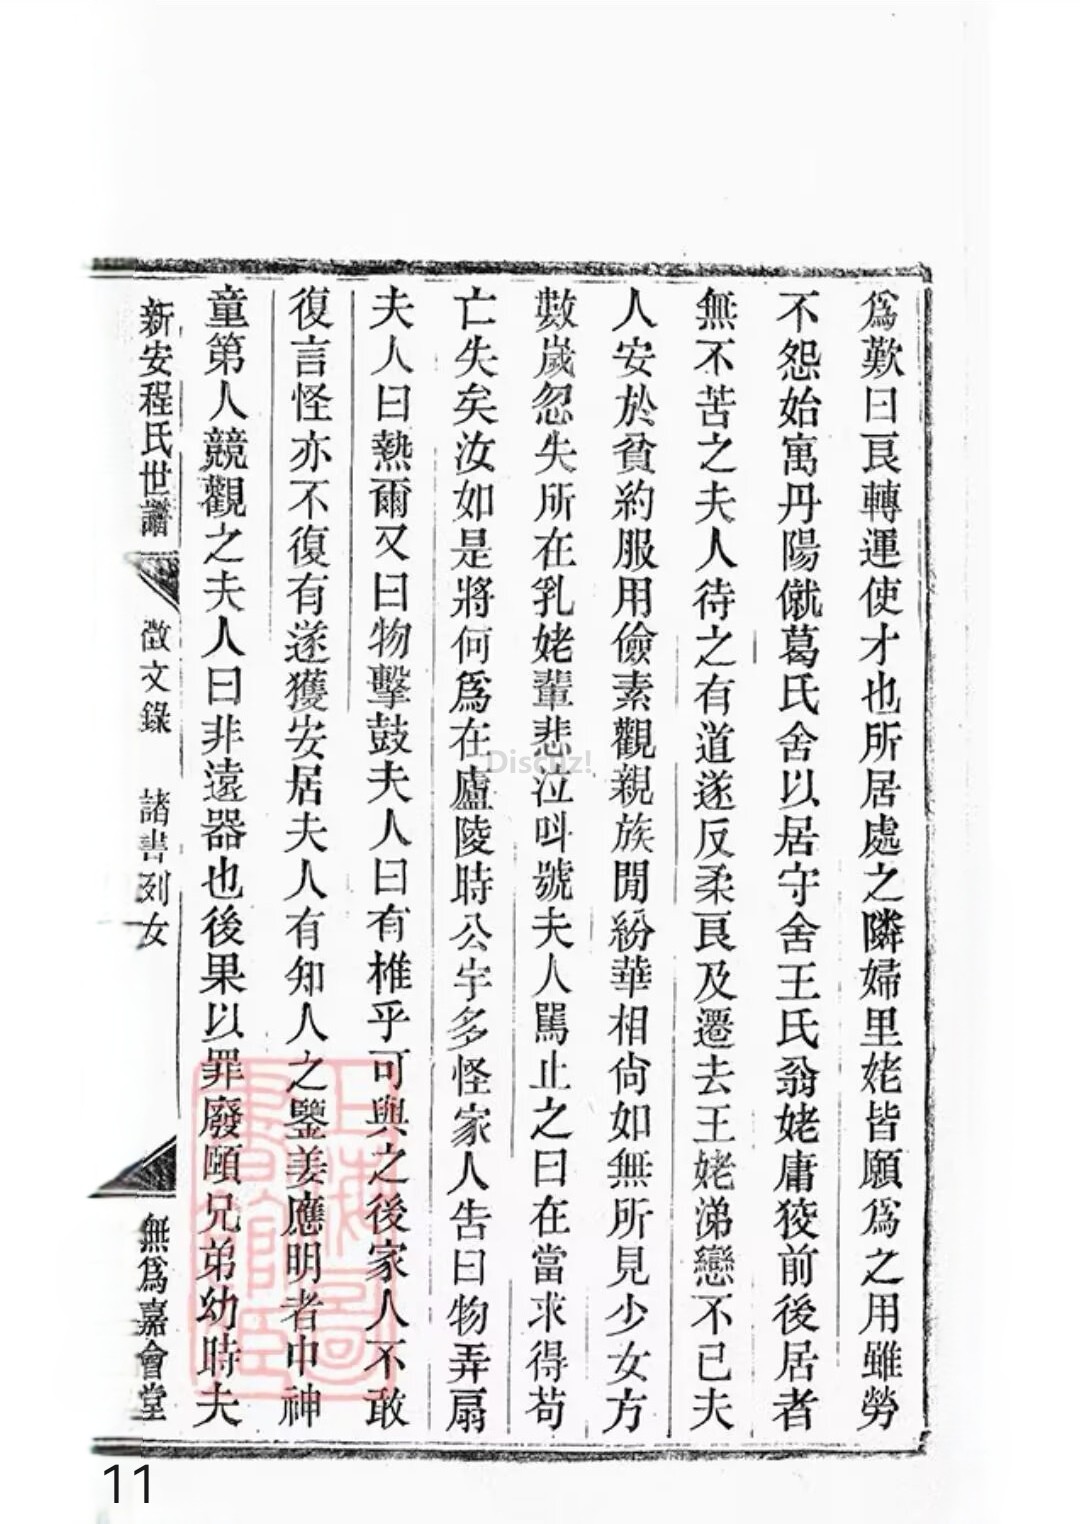 爲歎曰良轉運使才也所居處之隣婦里姥皆願爲之用雖勞
不怨始寓丹陽僦葛氏舍以居守舍王氏翁姥庸狡前後居者
無不苦之夫人待之有道遂反柔良及遷去王姥涕戀不已夫
人安於貧約服用儉素觀親族閒紛華相尙如無所見少女方
數歲忽失所在乳姥輩悲泣呌號夫人罵止之曰在當求得苟
亡失矣汝如是將何爲在廬陵時公宇多怪家人告曰物弄扇
夫人曰熱爾又曰物擊鼓夫人曰有椎乎可與之後家人不敢
復言怪亦不復有遂獲安居夫人有知人之鑒姜應明者中神
童第人競觀之夫人曰非遠器也後果以罪廢頤兄弟幼時夫
新安程氏世譜 徵文錄 諸書列女 無爲嘉會堂
上海圖書館藏
Discuz!
11